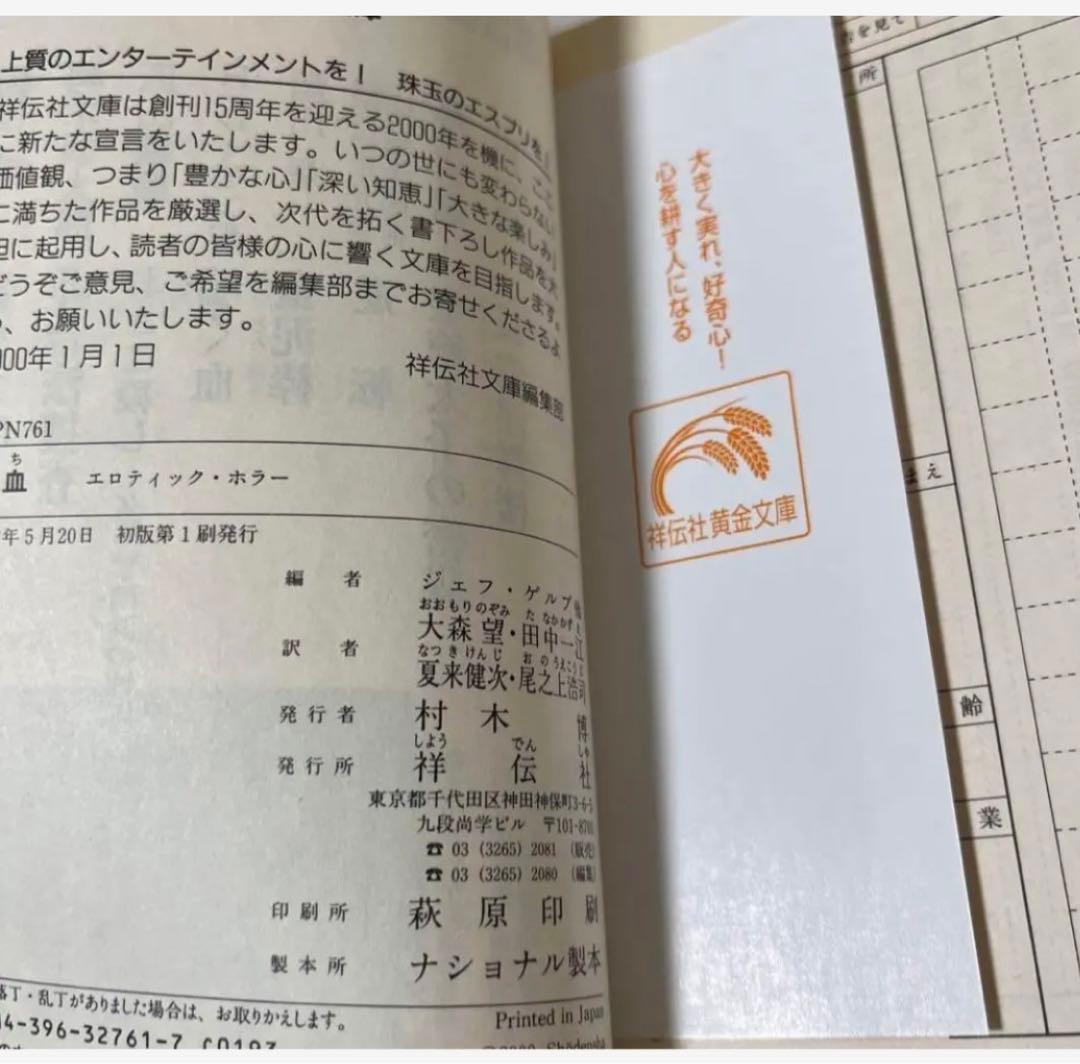 上質のエンターテインメントを!　珠玉のエスプリを!
祥伝社文庫は創刊15周年を迎える2000年を機に、ここ
に新たな宣言をいたします。いつの世にも変わらない
価値観、つまり「豊かな心」「深い知恵」「大きな楽しみ」
に満ちた作品を厳選し、次代を拓く書下ろし作品を大
胆に起用し、読者の皆様の心に響く文庫を目指します。
どうぞご意見、ご希望を編集部までお寄せくださるよ
う、お願いいたします。
000年1月1日　祥伝社文庫編集部
PN761
ち
血　エロティック・ホラー
年5月20日　初版第1刷発行
編者　ジェフ・ゲルブ他
おおもりのぞみ　たなかかずえ
訳者　大森望・田中一江
なつきけんじ　おのうえこうじ
夏来健次・尾之上浩司
発行者　村木博
しようでんしゃ
発行所　祥伝社
東京都千代田区神田神保町3-6-5
九段尚学ビル　〒101-8701
☎ 03 (3265) 2081 (販売)
☎ 03 (3265) 2080 (編集)
印刷所　萩原印刷
製本所　ナショナル製本
落丁・乱丁がありました場合は、お取りかえします。
4-396-32761-7 C0193
Printed in Japan
大きく実れ、好奇心!
心を耕す人になる
祥伝社黄金文庫
を見て
所
まえ
齢
業